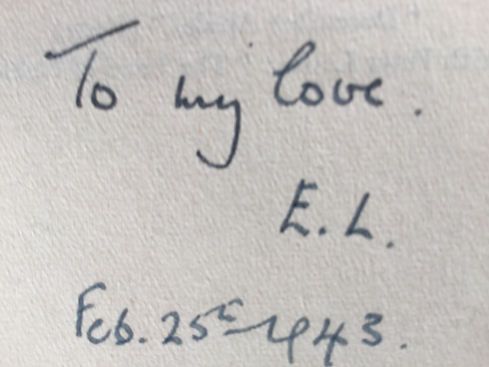 To my love.
E.L.
Feb. 25th 1943.